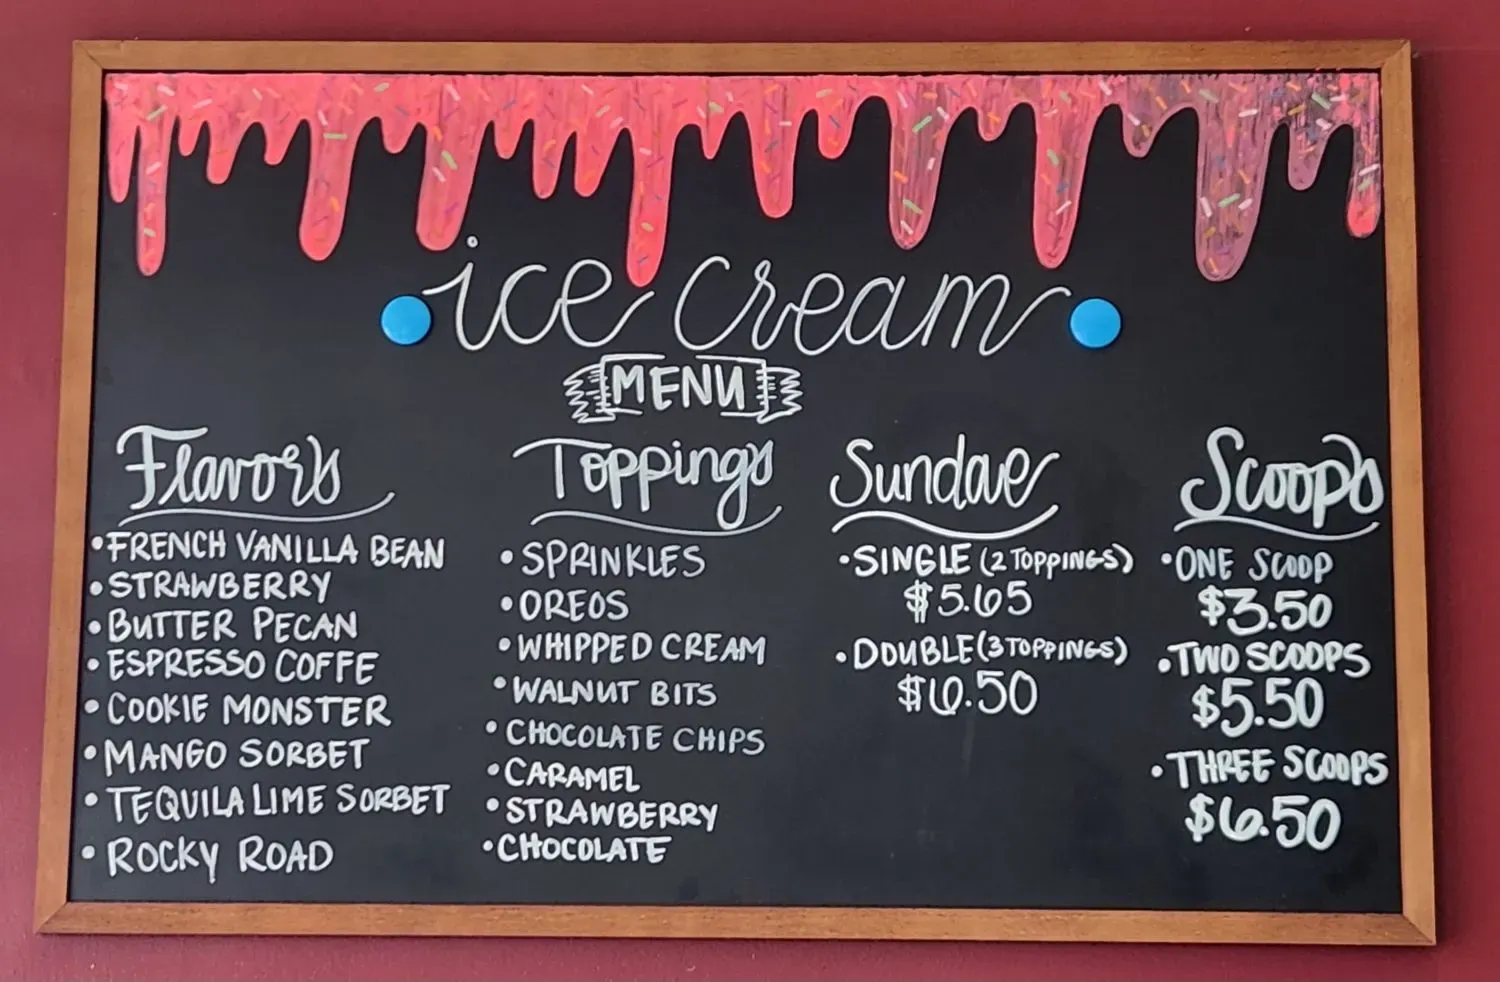 ice cream
MENU
Flavors
• FRENCH VANILLA BEAN
• STRAWBERRY
• BUTTER PECAN
• ESPRESSO COFFE
• COOKIE MONSTER
• MANGO SORBET
• TEQUILA LIME SORBET
• ROCKY ROAD
Toppings
• SPRINKLES
• OREOS
• WHIPPED CREAM
• WALNUT BITS
• CHOCOLATE CHIPS
• CARAMEL
• STRAWBERRY
• CHOCOLATE
Sundae
• SINGLE (2 TOPPINGS)
$5.65
• DOUBLE (3 TOPPINGS)
$6.50
Scoops
• ONE SCOOP
$3.50
• TWO SCOOPS
$5.50
• THREE SCOOPS
$6.50